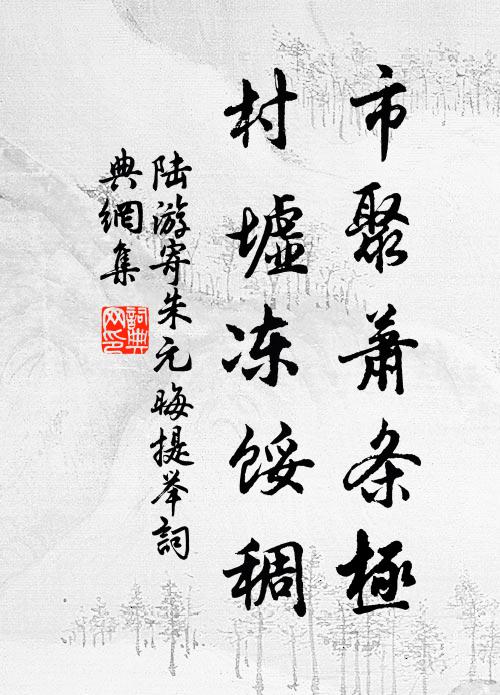 市聚萧条極
村墟冻馁稠
陆游寄朱元晦提举詞
典網集
詞典网印